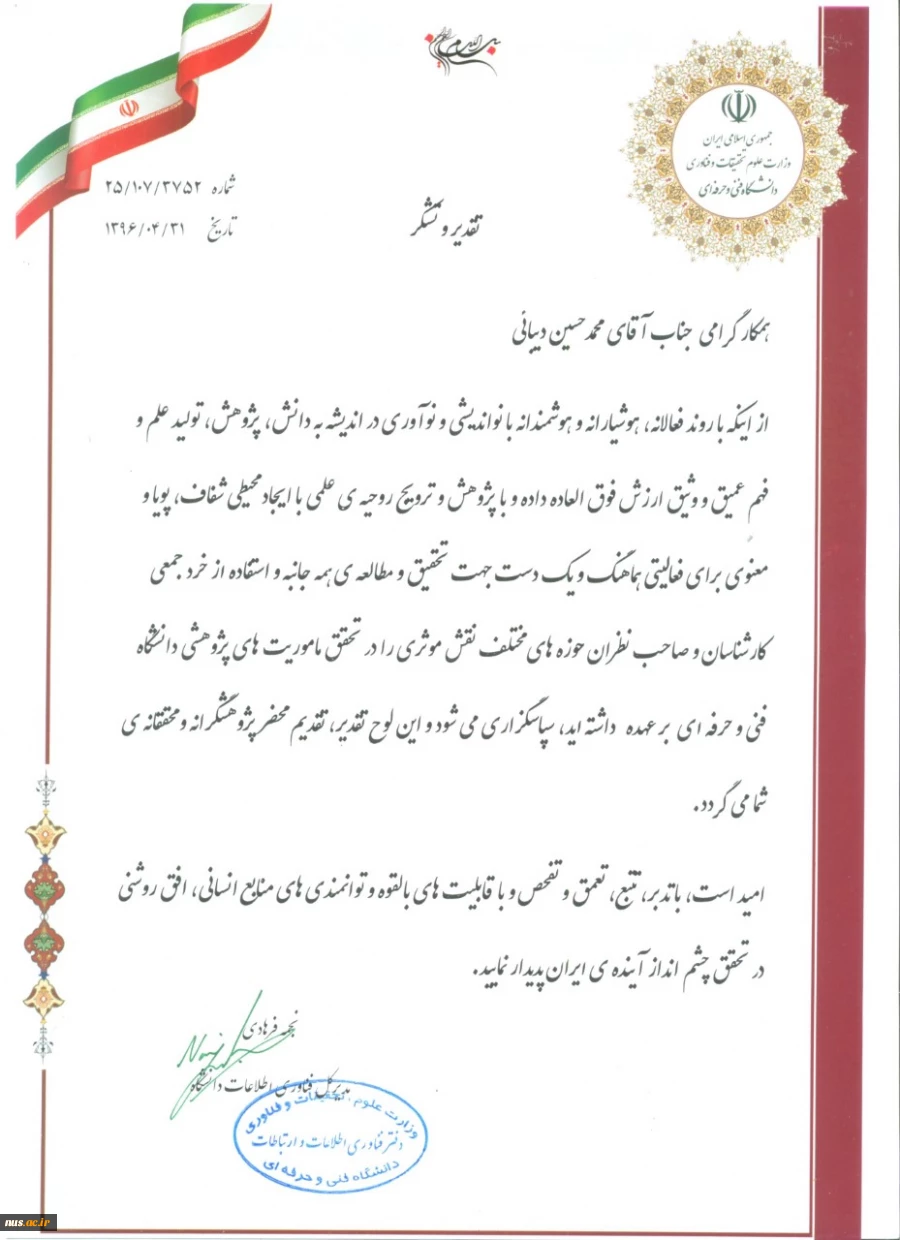 جمهوری اسلامی ایران
وزارت علوم تحقیقات و فناوری
دانشگاه فنی و حرفه ای
شماره ۲۵/۱۰۷/۳۷۵۲
تاریخ ۱۳۹۶/۰۴/۳۱
تقدیر و تشکر
همکار گرامی جناب آقای محمد حسین دیبائی
از اینکه با روند فعالانه، هوشیارانه و هوشمندانه با نواندیشی و نوآوری در اندیشه به دانش، پژوهش، تولید علم و
فهم عمیق و وثیق ارزش فوق العاده داده و با پژوهش و ترویج روحیه ی علمی با ایجاد محیطی شفاف، پویا و
معنوی برای فعالیتی هماهنگ و یک دست جهت تحقیق و مطالعه ی همه جانبه و استفاده از خرد جمعی
کارشناسان و صاحب نظران حوزه های مختلف نقش موثری را در تحقق ماموریت های پژوهشی دانشگاه
فنی و حرفه ای بر عهده داشته اید، سپاسگزاری می شود و این لوح تقدیر، تقدیم محضر پژوهشگرانه و محققانه ی
شما می گردد.
امید است، با تدبر، تتبع، تعمق و تفحص و با قابلیت های بالقوه و توانمندی های منابع انسانی، افق روشنی
در تحقق چشم انداز آینده ی ایران پدیدار نمایید.
نجمه فرهادی
مدیر کل فناوری اطلاعات دانشگاه
وزارت علوم، تحقیقات و فناوری
دفتر فناوری اطلاعات و ارتباطات
دانشگاه فنی و حرفه ای
nus.ac.ir